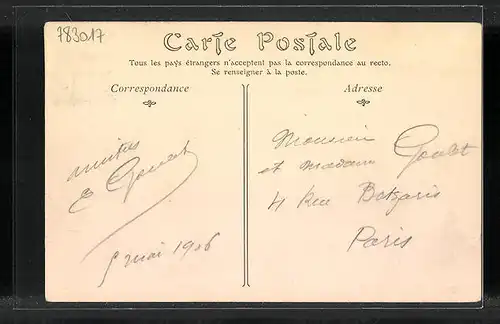 783017
Carte Postale
Tous les pays étrangers n'acceptent pas la correspondance au recto.
Se renseigner à la poste.
Correspondance
Adresse
Monsieur
et Madame Goulet
4 Rue Botzaris
Paris
amitiés
E
5 mai 1906